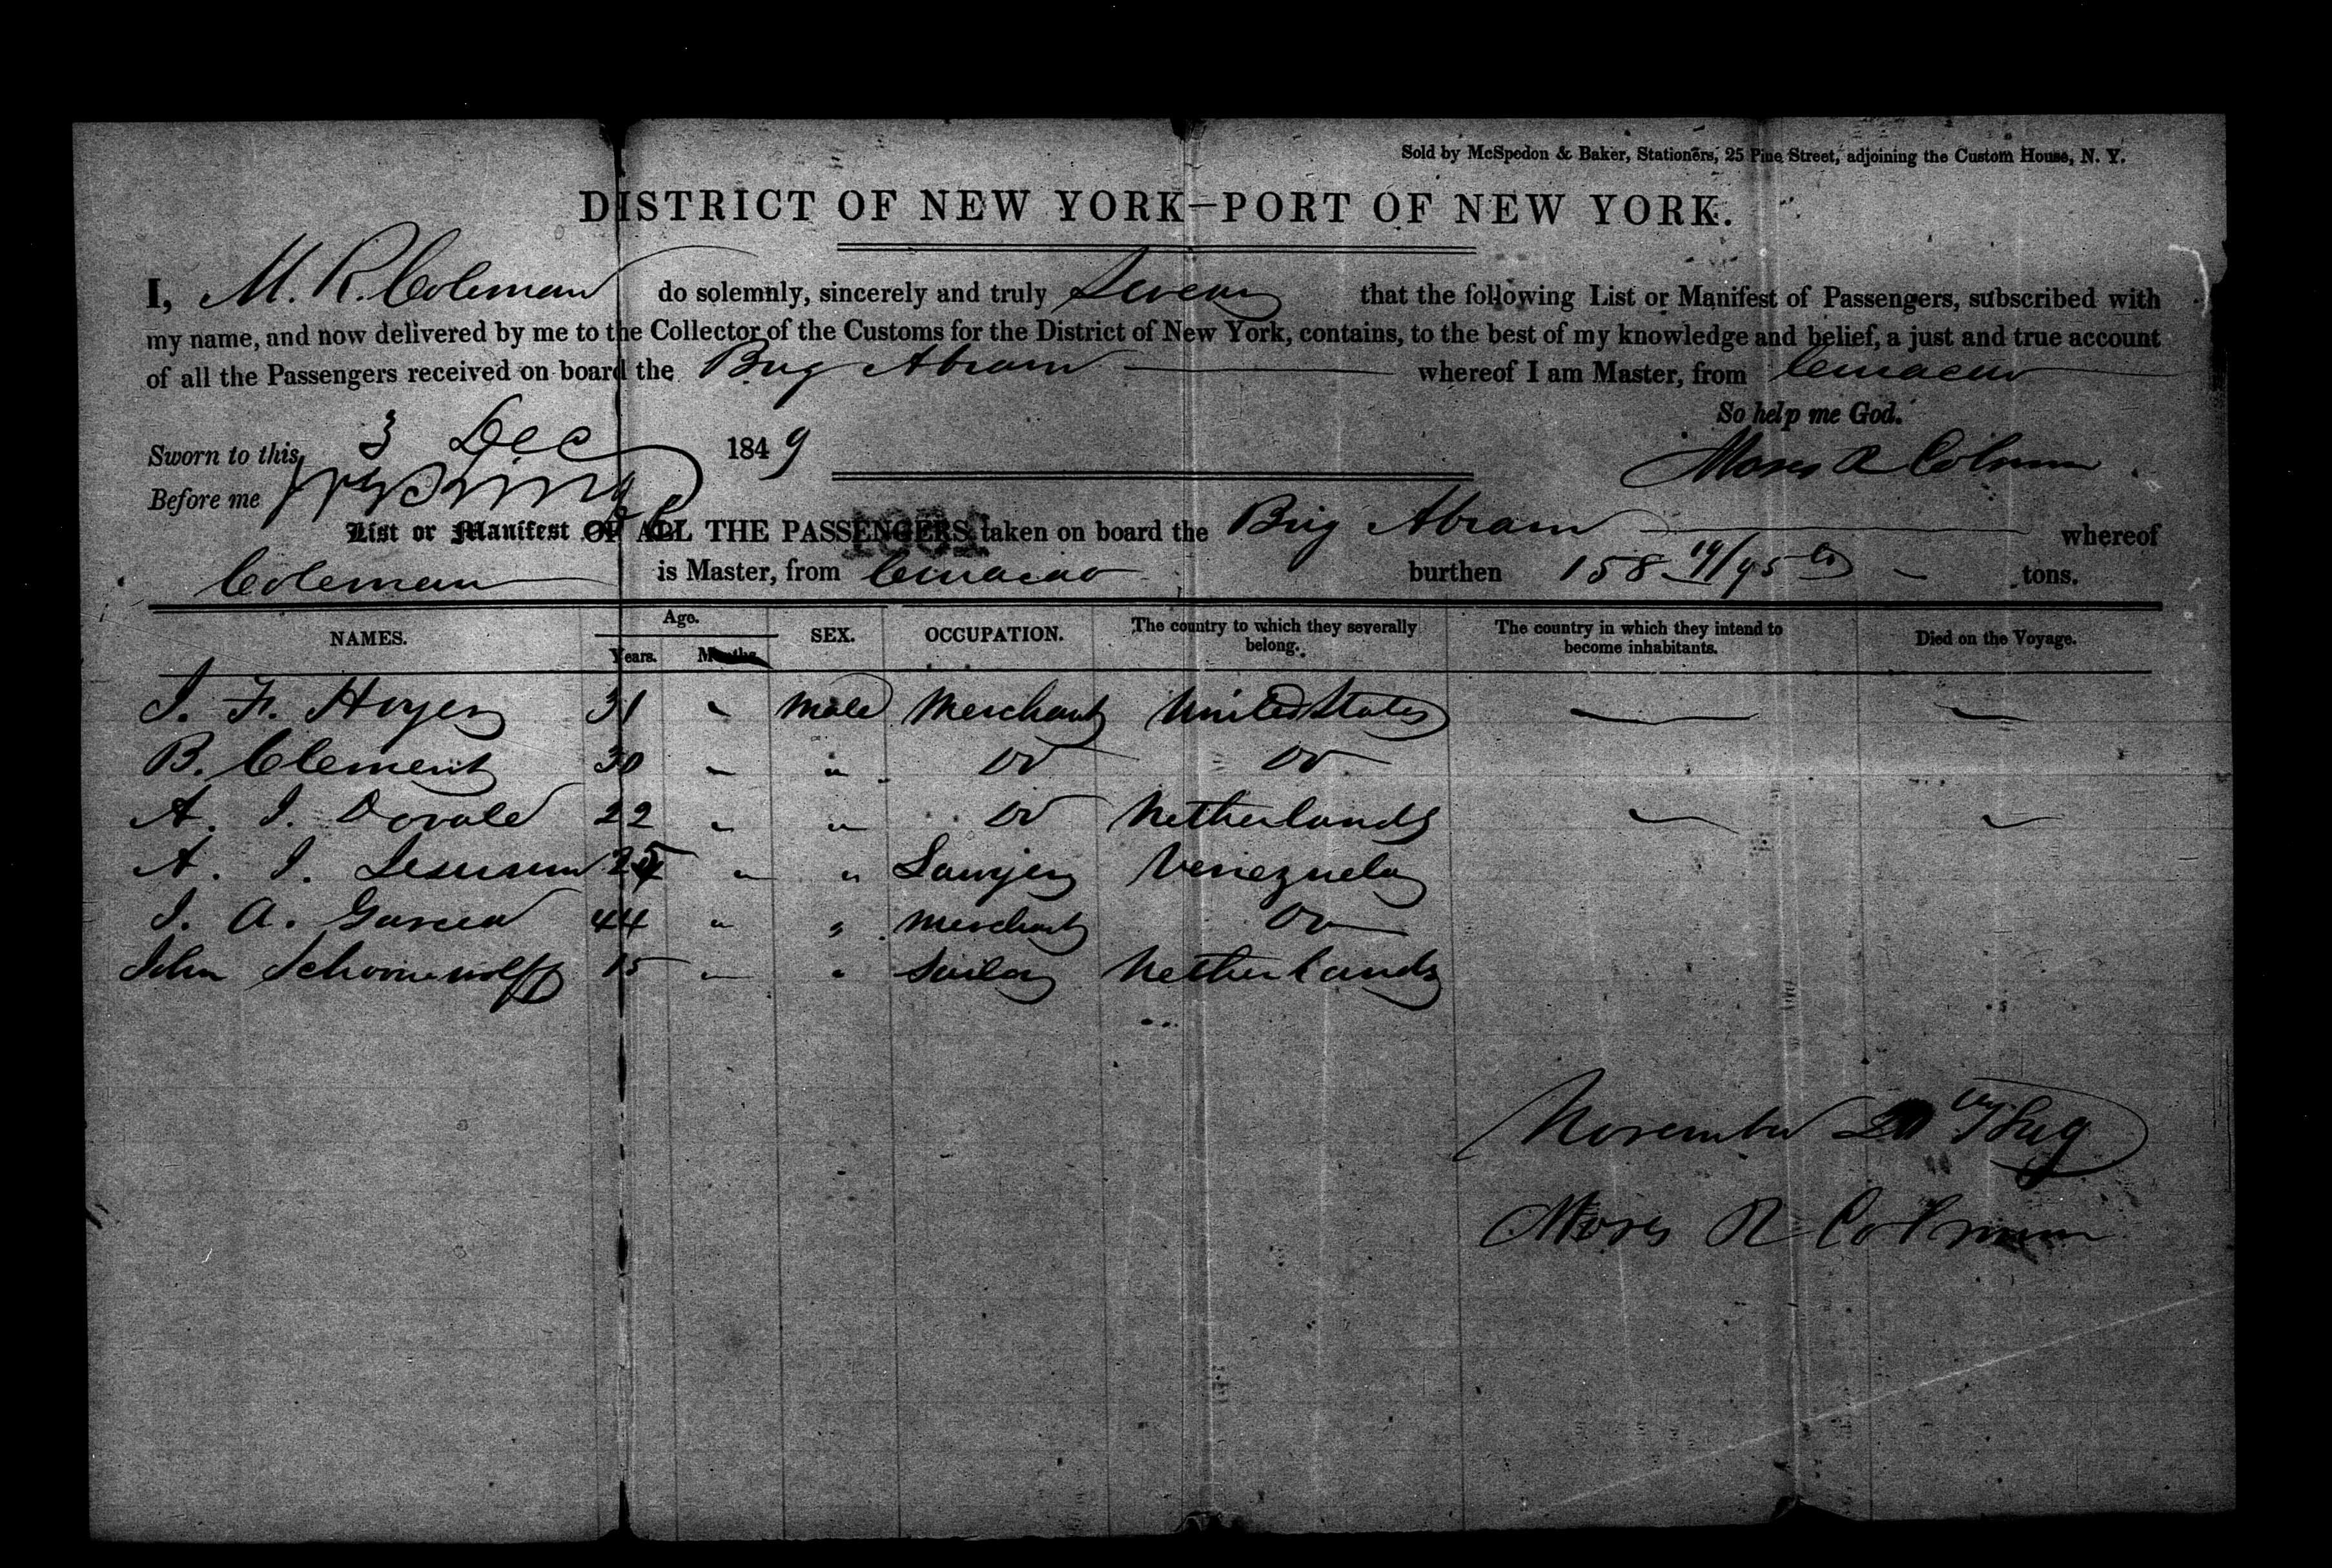 Sold by McSpedon & Baker, Stationers, 25 Pine Street, adjoining the Custom House, N. Y.
DISTRICT OF NEW YORK—PORT OF NEW YORK.
I, M. R. Coleman do solemnly, sincerely and truly Swear that the following List or Manifest of Passengers, subscribed with
my name, and now delivered by me to the Collector of the Customs for the District of New York, contains, to the best of my knowledge and belief, a just and true account
of all the Passengers received on board the Brig Abram whereof I am Master, from Curacao
So help me God.
Sworn to this 3 Dec 1849
Moses R Colman
Before me
List or Manifest OF ALL THE PASSENGERS taken on board the Brig Abram whereof
Coleman is Master, from Curacao burthen 158 19/95 tons.
NAMES. Age. Years. Months. SEX. OCCUPATION. The country to which they severally belong. The country in which they intend to become inhabitants. Died on the Voyage.
J. F. Hoyer 31 " Male Merchant United States — —
B. Clement 30 " " Do Do
A. J. Dovale 22 " " Do Netherlands — —
A. J. Jesurun 25 " " Lawyer Venezuela
J. A. Garcia 44 " " Merchant Do
John Schonewolff 15 " " Sailor Netherlands
November
Moses R Colman